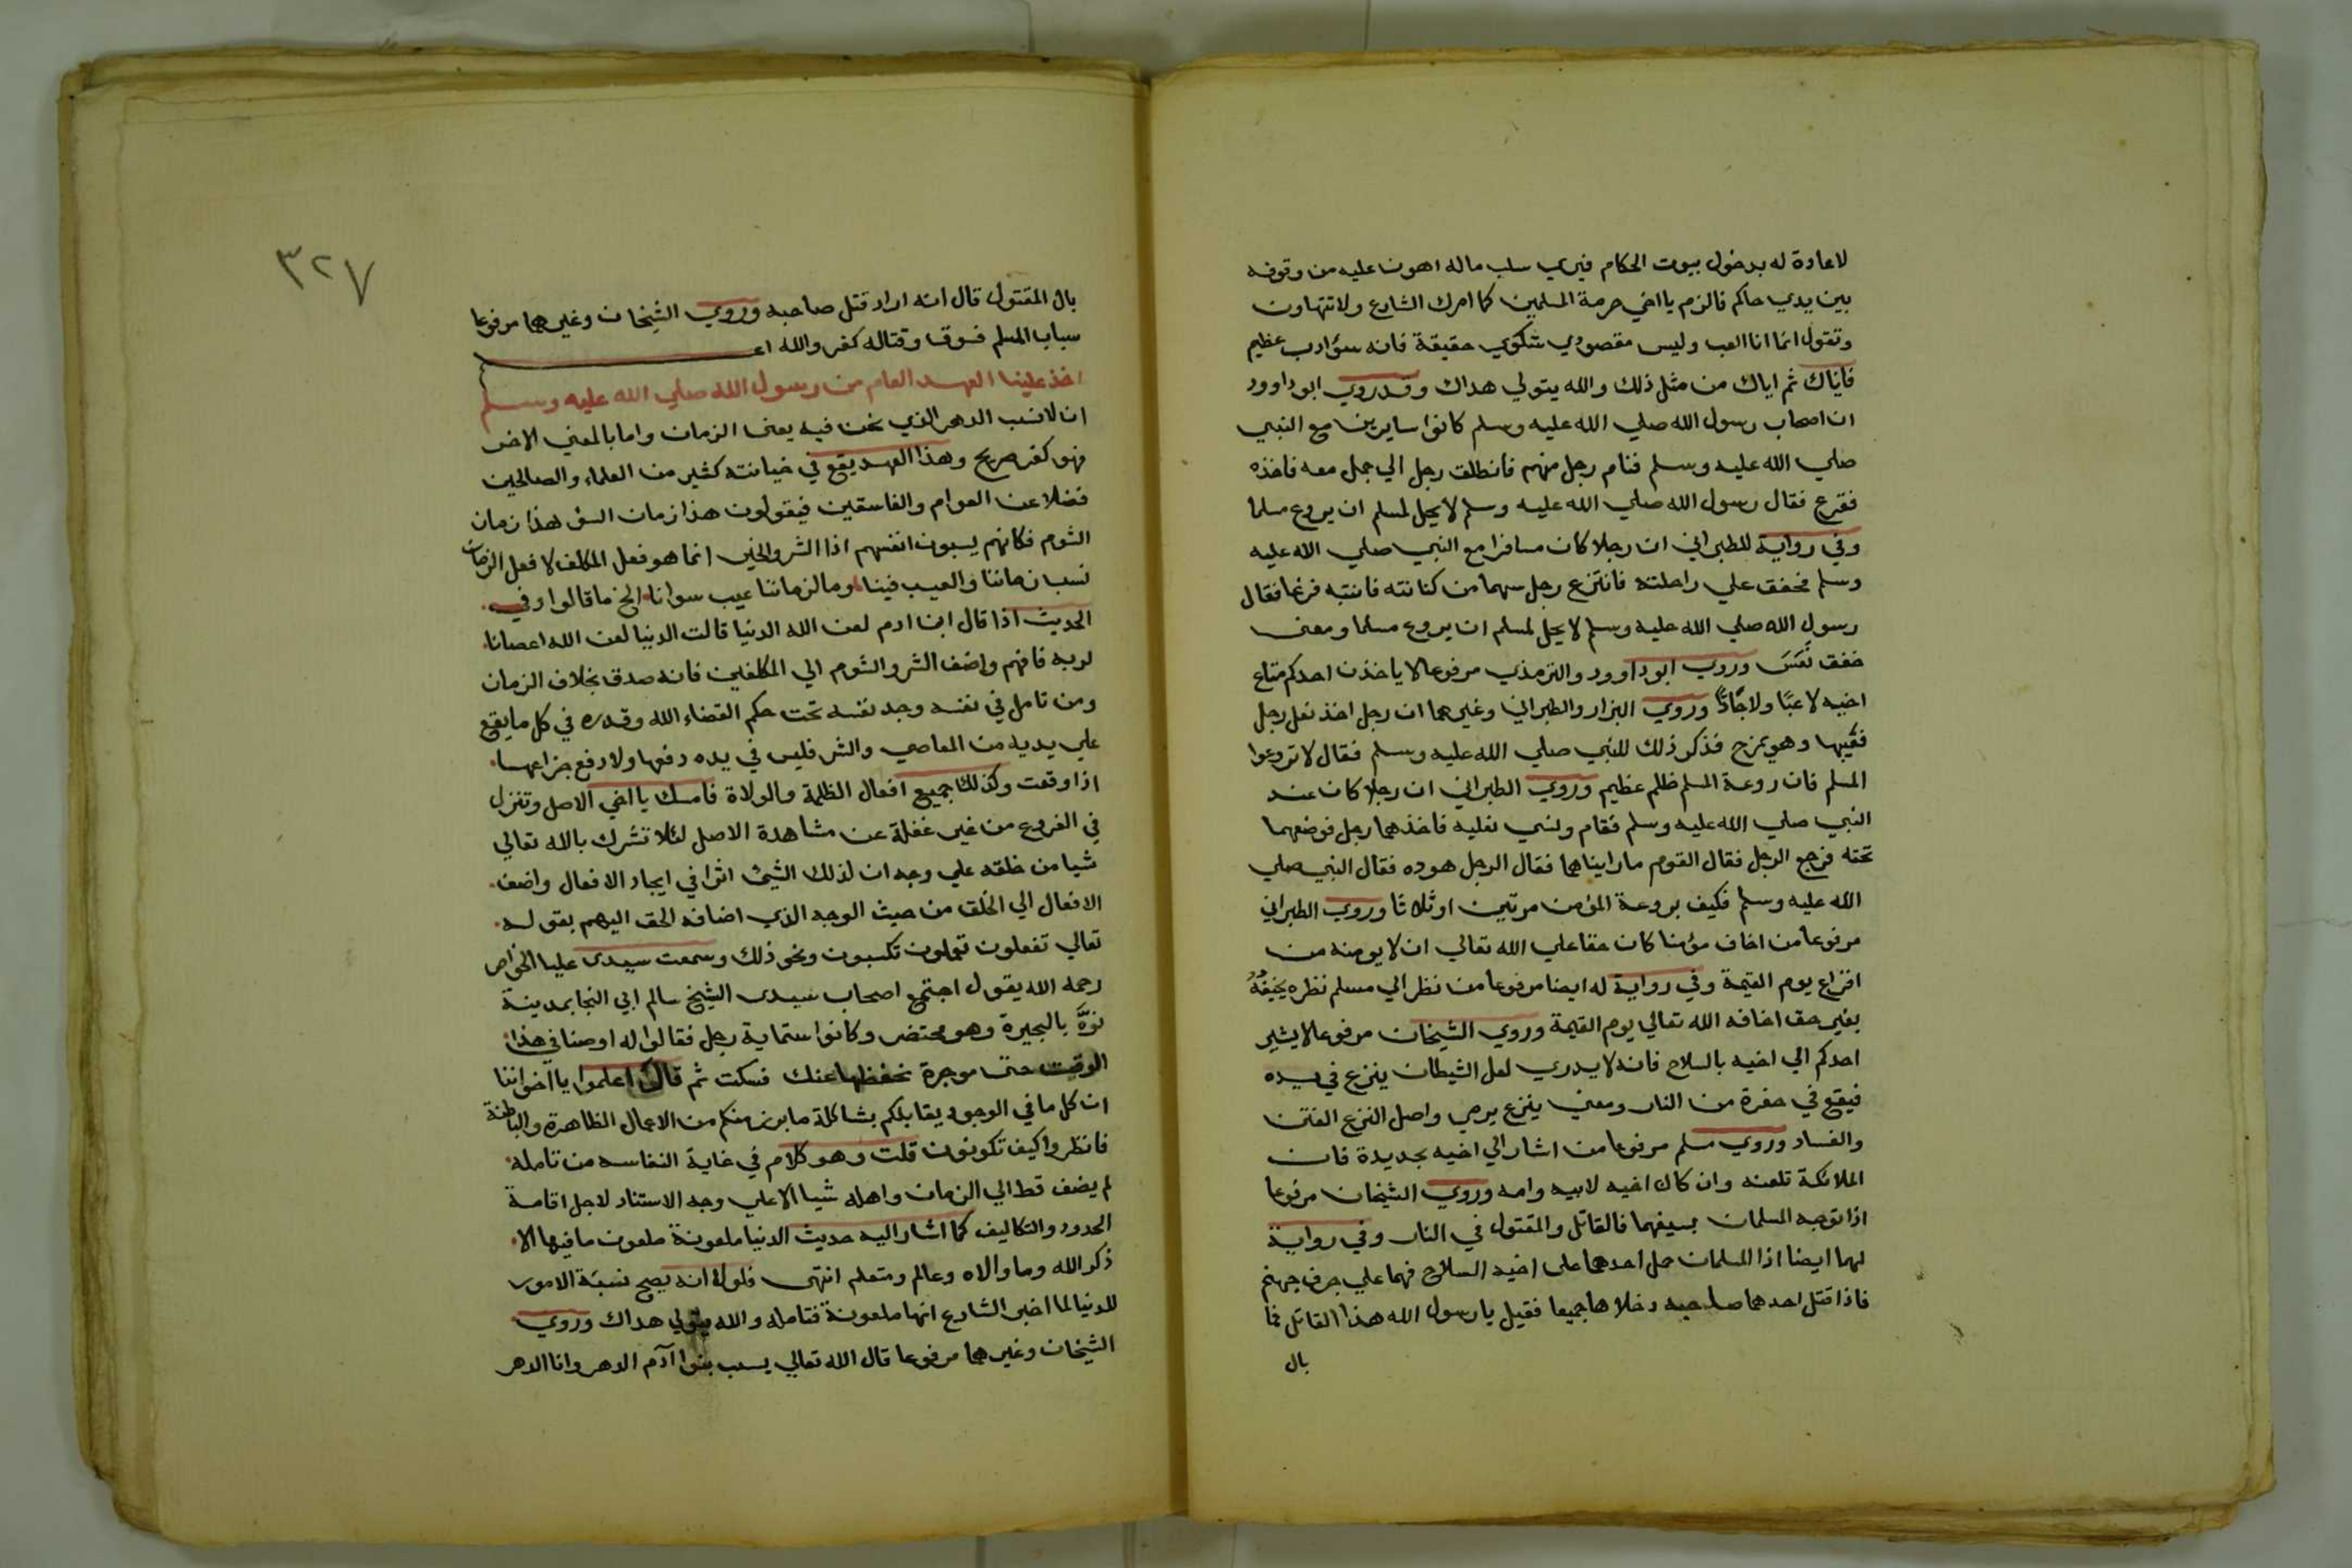 لاعادة له بدخول بيوت الحكام فيري سلب ماله اهون عليه من وقوفه
بين يدي حاكم فالزم يا اخي حرمة المسلمين كما امرك الشارع ولا تتهاون
وتقول انما انا العب وليس مقصودي شكوي حقيقة فانه سؤ ادب عظيم
فاياك ثم اياك من مثل ذلك والله يتولي هداك وقد روي ابو داوود
ان اصحاب رسول الله صلي الله عليه وسلم كانوا سايرين مع النبي
صلي الله عليه وسلم فنام رجل منهم فانطلق رجل الي حبل معه فاخذه
ففزع فقال رسول الله صلي الله عليه وسلم لا يحل لمسلم ان يروع مسلما
وفي رواية للطبراني ان رجلا كان مسافرا مع النبي صلي الله عليه
وسلم فخفق علي راحلته فانتزع رجل سهما من كنانته فانتبه فزعا فقال
رسول الله صلي الله عليه وسلم لا يحل لمسلم ان يروع مسلما ومعني
خفق نَعَسَ وروي ابو داوود والترمذي مرفوعا لا ياخذن احدكم متاع
اخيه لاعبًا ولا جَادًّا وروي البزار والطبراني وغيرهما ان رجل اخذ نعل رجل
فغيبها وهو يمزح فذكر ذلك للنبي صلي الله عليه وسلم فقال لا تروعوا
المسلم فان روعة المسلم ظلم عظيم وروي الطبراني ان رجلا كان عند
النبي صلي الله عليه وسلم فقام ونسي نعليه فاخذهما رجل فوضعهما
تحته فرجع الرجل فقال القوم ما رايناهما فقال الرجل هوده فقال النبي صلي
الله عليه وسلم فكيف بروعة المؤمن مرتين او ثلاثا وروي الطبراني
مرفوعا من اخاف مؤمنا كان حقا علي الله تعالي ان لا يومنه من
افزاع يوم القيمة وفي رواية له ايضا مرفوعا من نظر الي مسلم نظره يخيفهُ
بغير حق اخافه الله تعالي يوم القيمة وروي الشيخان مرفوعا لا يشير
احدكم الي اخيه بالسلاح فانه لا يدري لعل الشيطان ينزع في يده
فيقع في حفرة من النار ومعني ينزع يرمي واصل النزع الفتن
والفساد وروي مسلم مرفوعا من اشار الي اخيه بحديدة فان
الملائكة تلعنه وان كان اخيه لابيه وامه وروي الشيخان مرفوعا
اذا توجه المسلمان بسيفهما فالقاتل والمقتول في النار وفي رواية
لهما ايضا اذا المسلمان حمل احدهما على اخيه السلاح فهما علي جرف جهنم
فاذا قتل احدهما صاحبه دخلاها جميعا فقيل يا رسول الله هذا القاتل فما
بال
٣٢٧
بال المقتول قال انه اراد قتل صاحبه وروي الشيخان وغيرهما مرفوعا
سباب المسلم فسوق وقتاله كفر والله اع
اخذ علينا العهد العام من رسول الله صلي الله عليه وسلم
ان لا نسب الدهر الذي نحن فيه يعني الزمان واما بالمعني الاخر
فهو كفر صريح وهذا العهد يقع في خيانته كثير من العلماء والصالحين
فضلا عن العوام والفاسقين فيقولون هذا زمان السؤ هذا زمان
الشوم فكانهم يسبون انفسهم اذا الشر والخير انما هو فعل المكلف لا فعل الزمان
نسب زماننا والعيب فينا وما لزماننا عيب سوانا الخ ما قالوا وفي
الحديث اذا قال ابن ادم لعن الله الدنيا قالت الدنيا لعن الله اعصانا
لربه فافهم واضف الشر والشوم الي المكلفين فانه صدق بخلاف الزمان
ومن تامل في نفسه وجد نفسه تحت حكم القضاء الله وقدره في كل ما يقع
علي يديه من المعاصي والشر فليس في يده دفعها ولا دفع جزاعها
اذا وقعت وكذلك جميع افعال الظلمة والولاة فامسك يا اخي الاصل وتنزل
في الفروع من غير غفلة عن مشاهدة الاصل لئلا تشرك بالله تعالي
شيا من خلقه علي وجه ان لذلك الشيئ اثرا في ايجاد الافعال واضف
الافعال الي الخلق من حيث الوجه الذي اضافه الحق اليهم بقوله
تعالي تفعلون تعملون تكسبون ونحو ذلك وسمعت سيدى عليا الخواص
رحمه الله يقول اجتمع اصحاب سيدى الشيخ سالم ابي النجا بمدينة
فوَّه بالبحيرة وهو محتضر وكانوا ستماية رجل فقالوا له اوصنا في هذا
الوقت حتى موجزة نحفظها عنك فسكت ثم قال اعلموا يا اخواننا
ان كل ما في الوجود يقابلكم بشاكلة ما برز منكم من الاعمال الظاهرة والباطنة
فانظروا كيف تكونون قلت وهو كلام في غاية النفاسه من تامله
لم يضف قط الي الزمان واهله شيا الا علي وجه الاستناد لاجل اقامة
الحدود والتكاليف كما اشار اليه حديث الدنيا ملعونة ملعون ما فيها الا
ذكر الله وما والاه وعالم ومتعلم انتهى فلولا انه يصح نسبة الامور
للدنيا لما اخبر الشارع انها ملعونة فتامله والله يتولي هداك وروي
الشيخان وغيرهما مرفوعا قال الله تعالي يسب بنوا آدم الدهر وانا الدهر